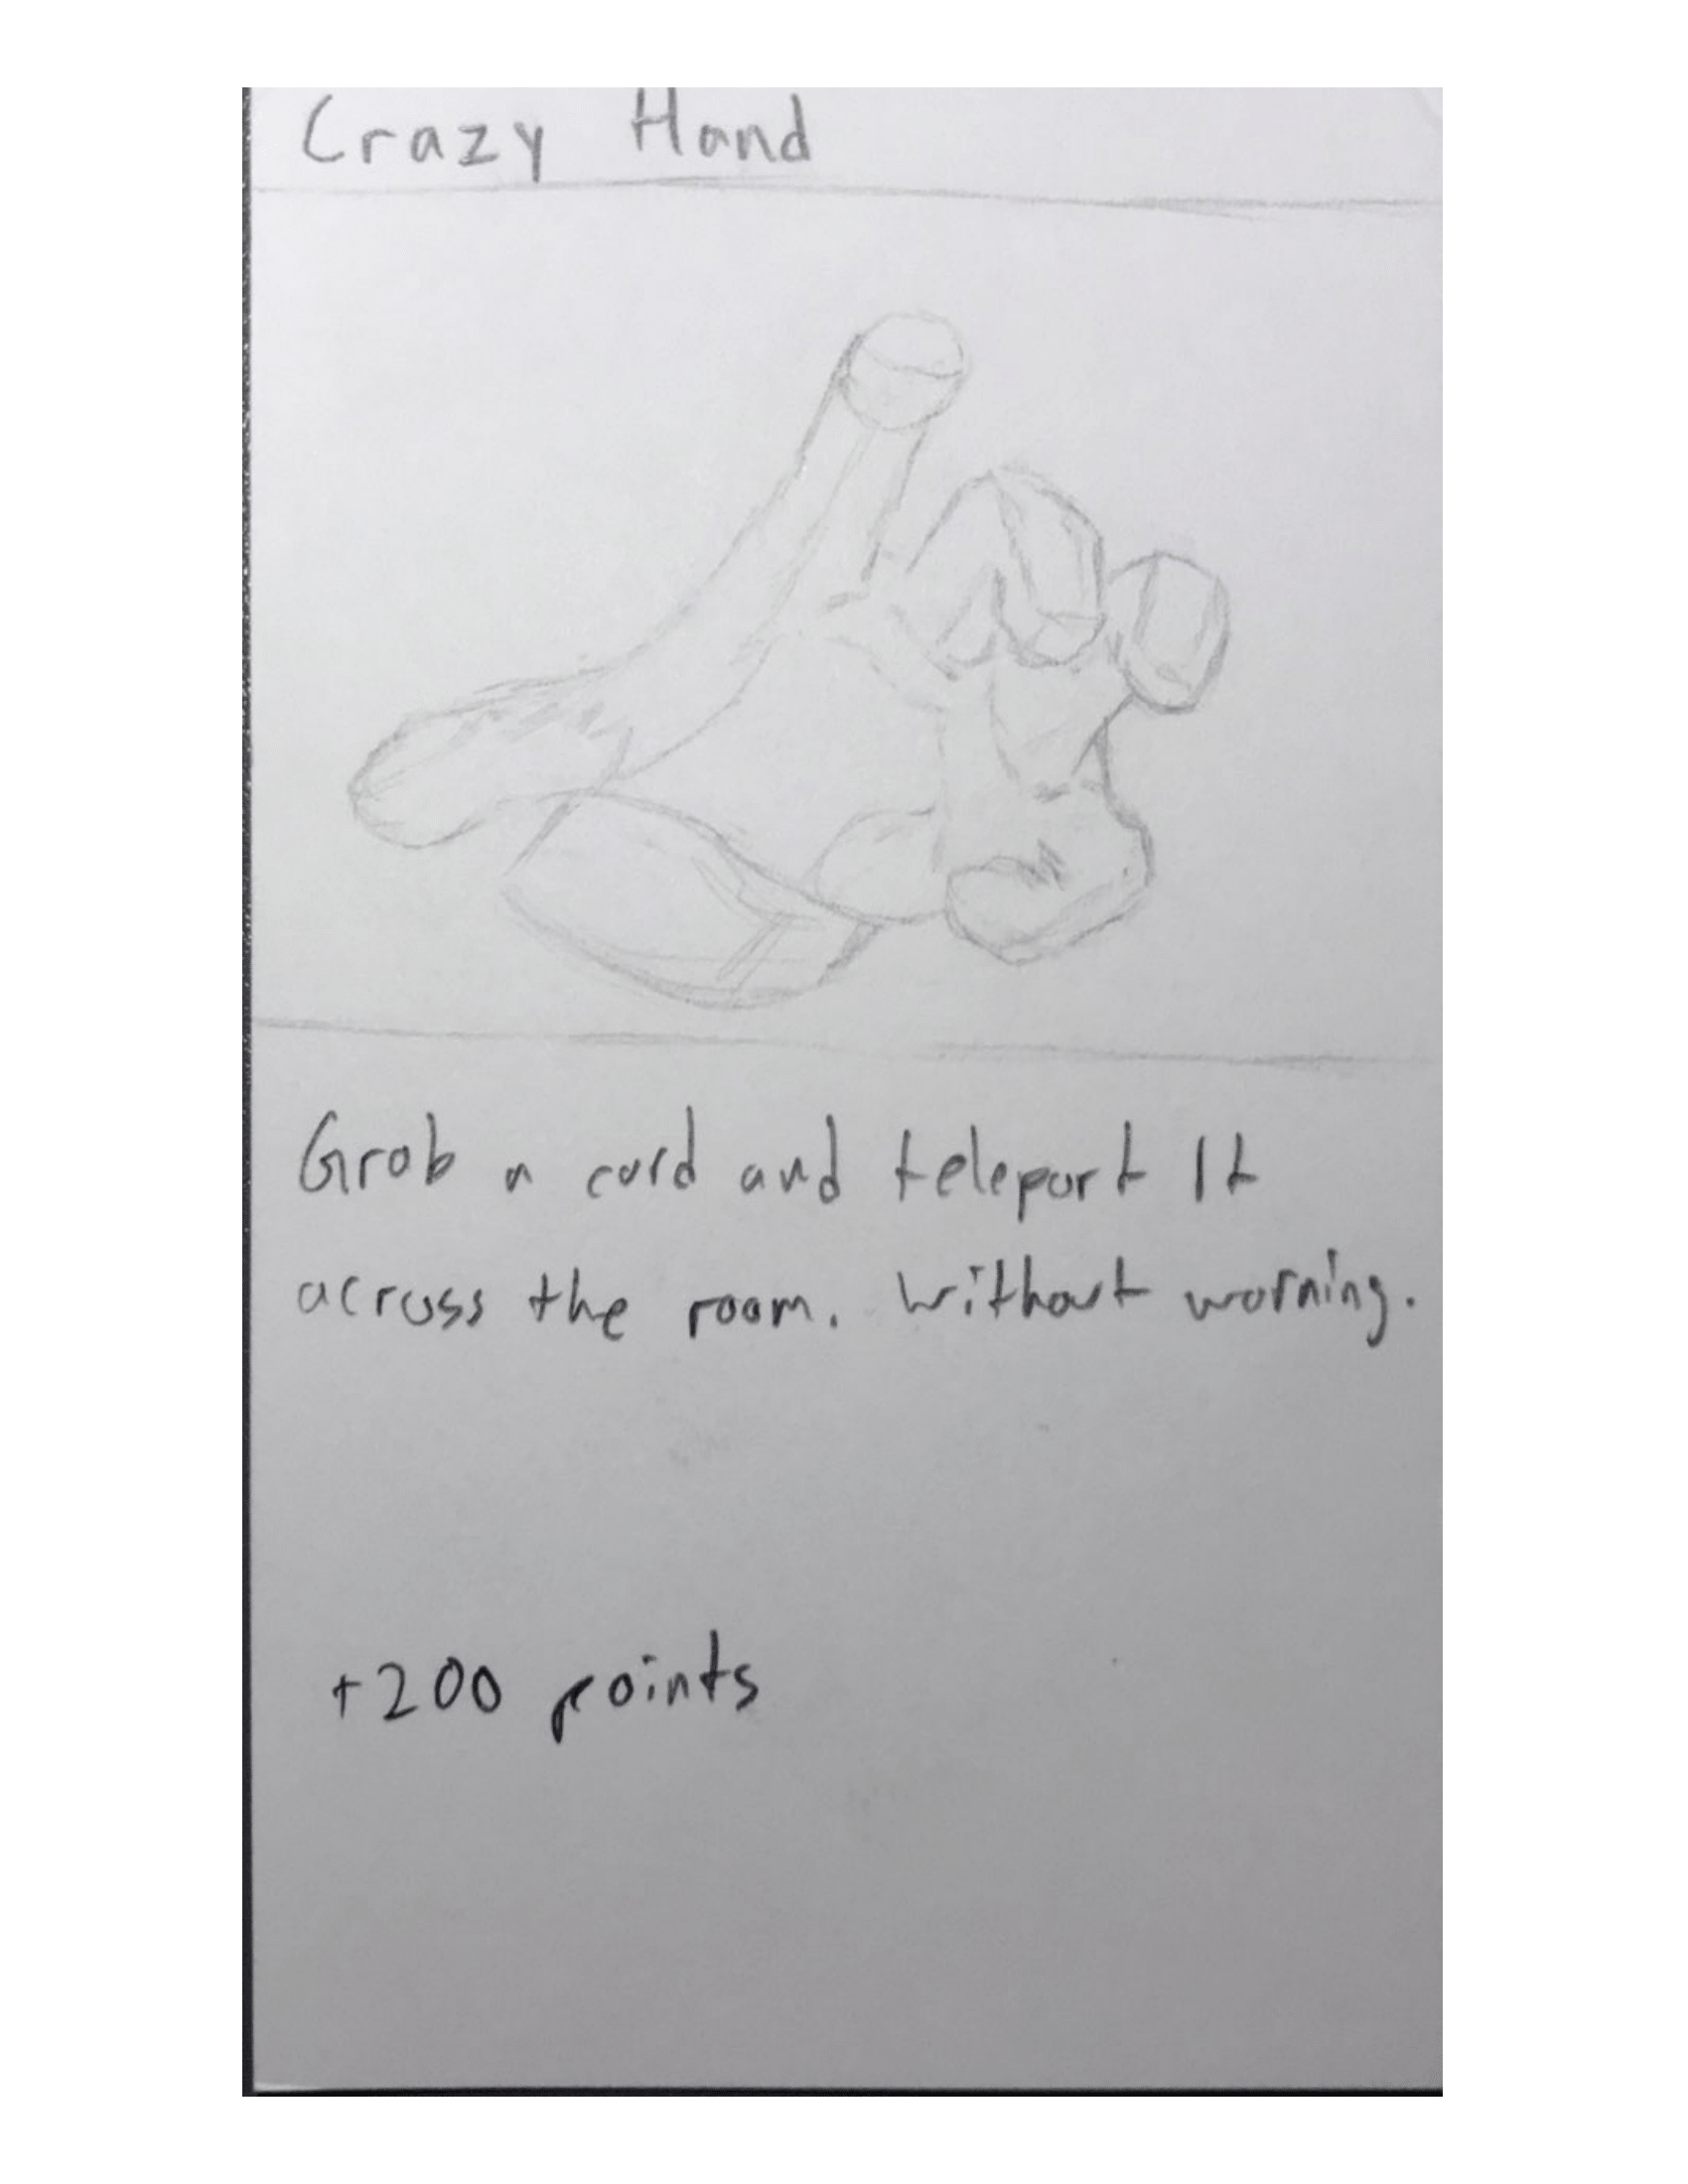 Crazy Hand
Grab a card and teleport It
across the room. Without warning.
+200 points